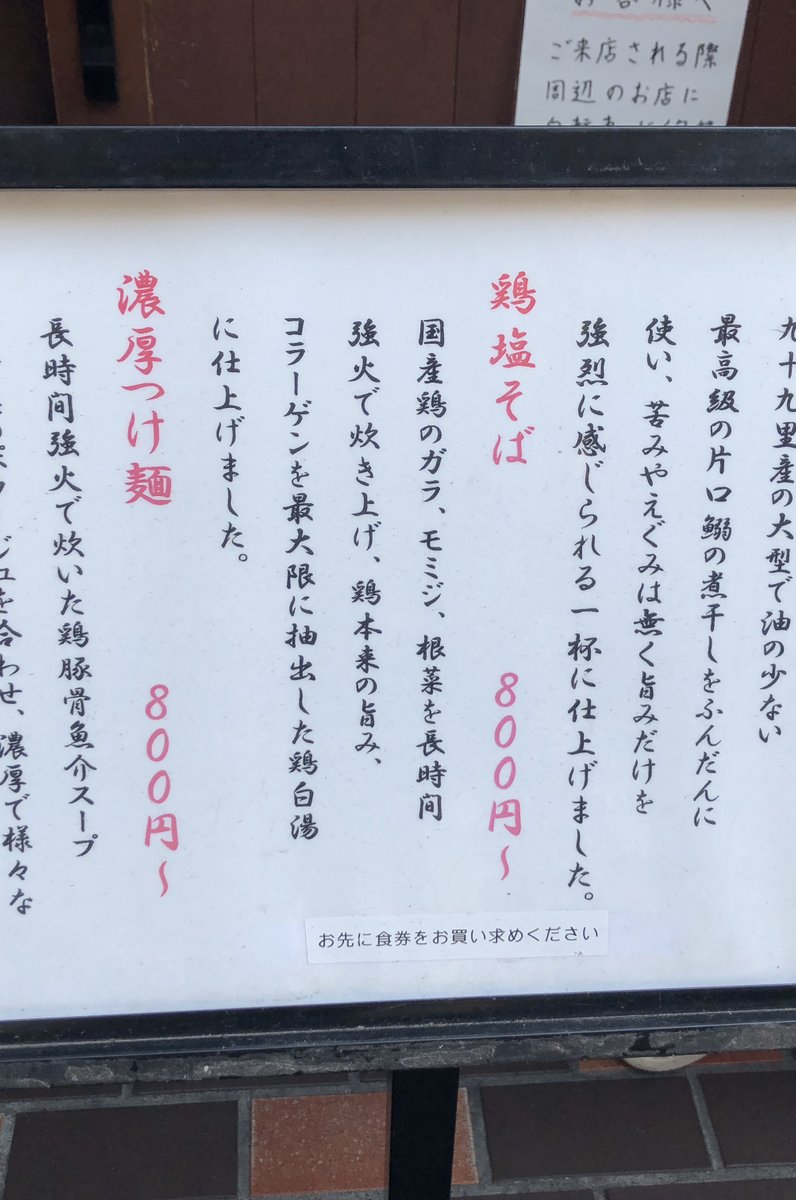 お客様へ
ご来店される際
周辺のお店に
九十九里産の大型で油の少ない
最高級の片口鰯の煮干しをふんだんに
使い、苦みやえぐみは無く旨みだけを
強烈に感じられる一杯に仕上げました。
鶏塩そば 800円〜
国産鶏のガラ、モミジ、根菜を長時間
強火で炊き上げ、鶏本来の旨み、
コラーゲンを最大限に抽出した鶏白湯
に仕上げました。
濃厚つけ麺 800円〜
長時間強火で炊いた鶏豚骨魚介スープ
ジュを合わせ、濃厚で様々な
お先に食券をお買い求めください